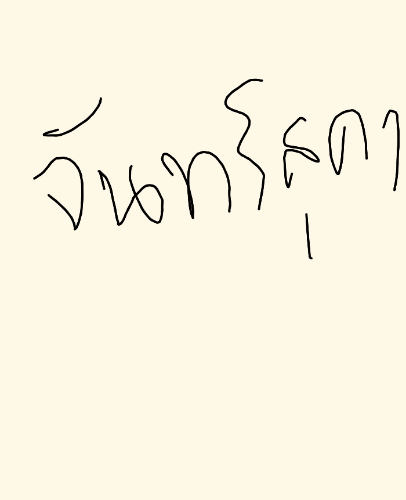 จันทร์สุดา